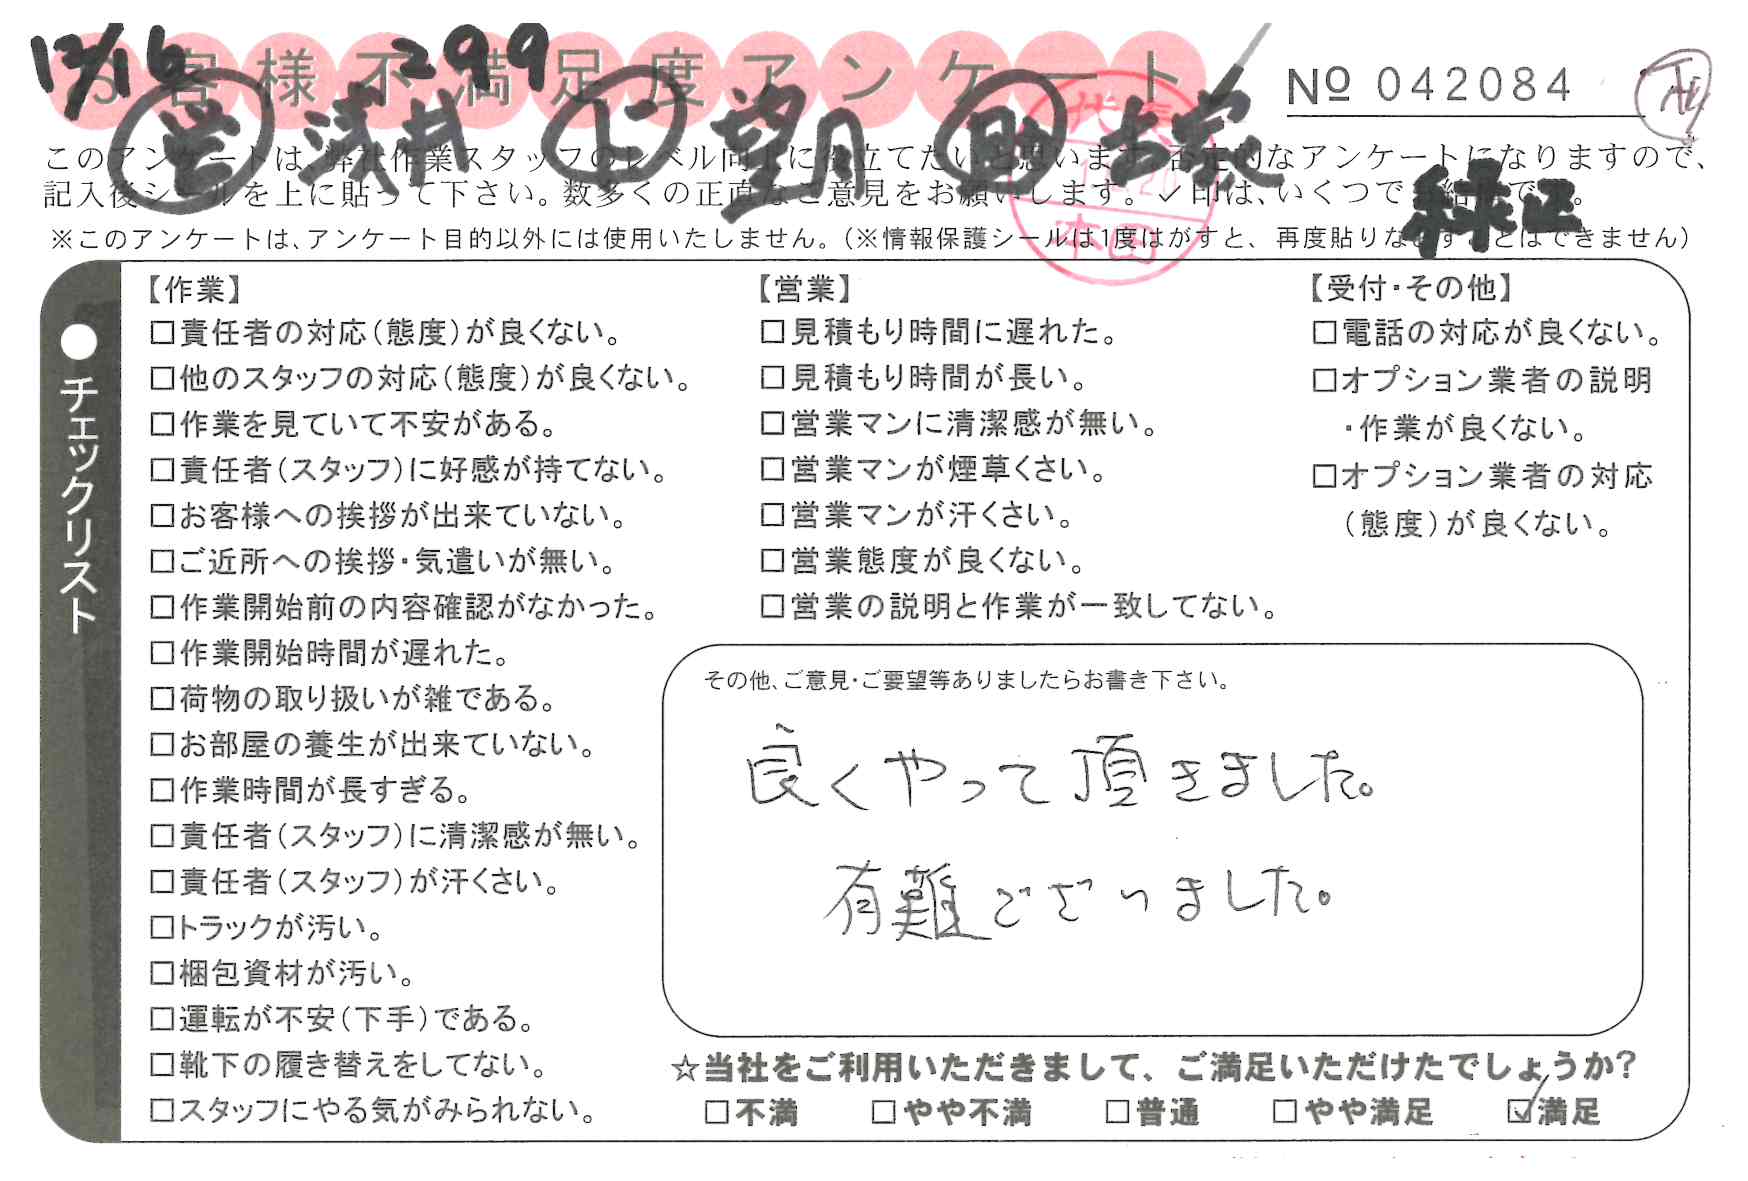 12/16 299
お客様不満足度アンケート
№ 042084
営 浅井 上 望月 助 古家
緑正
代表
本田
このアンケートは、弊社作業スタッフのレベル向上に役立てたいと思います。否定的なアンケートになりますので、
記入後シールを上に貼って下さい。数多くの正直なご意見をお願いします。✓印は、いくつでも結構です。
※このアンケートは、アンケート目的以外には使用いたしません。（※情報保護シールは1度はがすと、再度貼りなおすことはできません）
●チェックリスト
【作業】
□責任者の対応（態度）が良くない。
□他のスタッフの対応（態度）が良くない。
□作業を見ていて不安がある。
□責任者（スタッフ）に好感が持てない。
□お客様への挨拶が出来ていない。
□ご近所への挨拶・気遣いが無い。
□作業開始前の内容確認がなかった。
□作業開始時間が遅れた。
□荷物の取り扱いが雑である。
□お部屋の養生が出来ていない。
□作業時間が長すぎる。
□責任者（スタッフ）に清潔感が無い。
□責任者（スタッフ）が汗くさい。
□トラックが汚い。
□梱包資材が汚い。
□運転が不安（下手）である。
□靴下の履き替えをしてない。
□スタッフにやる気がみられない。
【営業】
□見積もり時間に遅れた。
□見積もり時間が長い。
□営業マンに清潔感が無い。
□営業マンが煙草くさい。
□営業マンが汗くさい。
□営業態度が良くない。
□営業の説明と作業が一致してない。
【受付・その他】
□電話の対応が良くない。
□オプション業者の説明
・作業が良くない。
□オプション業者の対応
（態度）が良くない。
その他、ご意見・ご要望等ありましたらお書き下さい。
良くやって頂きました。
有難ございました。
☆当社をご利用いただきまして、ご満足いただけたでしょうか？
□不満 □やや不満 □普通 □やや満足 ☑満足